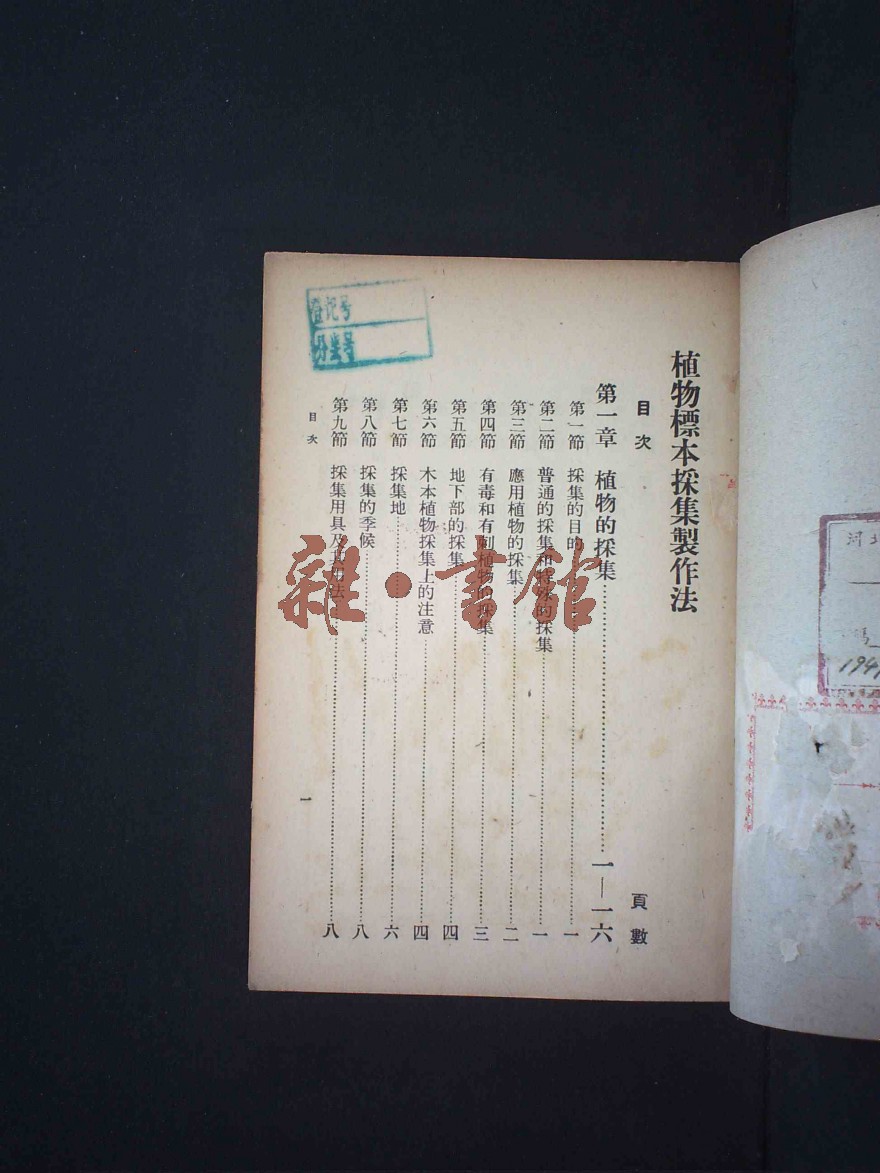 植物標本採集製作法
目次
頁數
第一章 植物的採集 一—一六
第一節 採集的目的 一
第二節 普通的採集和特殊的採集 一
第三節 應用植物的採集 二
第四節 有毒和有刺植物的採集 三
第五節 地下部的採集 四
第六節 木本植物採集上的注意 四
第七節 採集地 六
第八節 採集的季候 八
第九節 採集用具及其用法 八
目次
一
登记号
分类号
雜·書館
河北